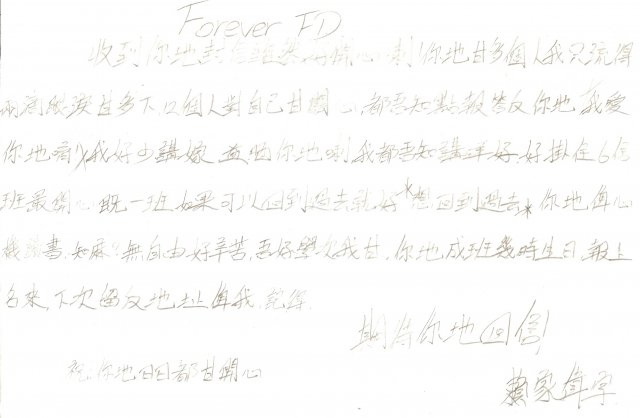 Forever FD
收到你地封信雖然好開心,喇!你地甘多個人我只流得
兩滴眼淚甘多下,口個人對自己甘關心,都吾知點報答反你地,我愛
你地甭)(我好少講嫁,益哂你地喇我都吾知講乜好,好掛住6舍
班最開心既一班,如果可以回到過去就好*想回到過去*你地俾心
機讀書,知麻?無自由好辛苦,吾好學次我甘,你地成班幾時生日,報上
名來,下次留反地址俾我,記得
期待你地回信!
祝:你地日日都甘開心
家偉字